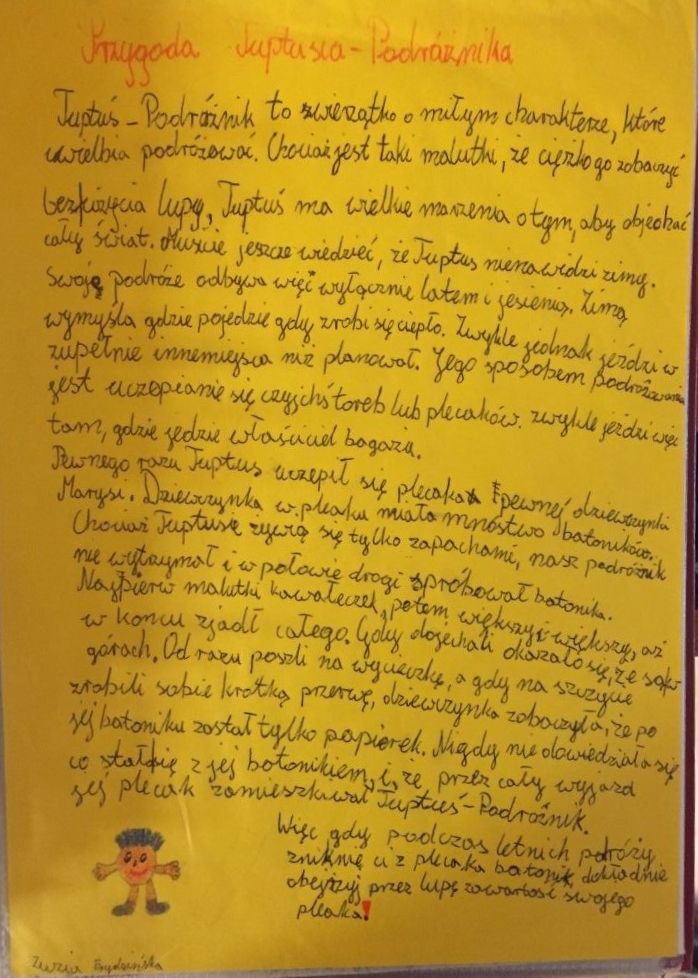 Przygoda Tuptusia-Podróżnika
Tuptuś-Podróżnik to zwierzątko o miłym charakterze, które
uwielbia podróżować. Chociaż jest taki malutki, że ciężko go zobaczyć
bez użycia lupy, Tuptuś ma wielkie marzenia o tym, aby objechać
cały świat. Musicie jeszcze wiedzieć, że Tuptuś nienawidzi zimy.
Swoje podróże odbywa więc wyłącznie latem i jesienią. Zimą
wymyśla gdzie pojedzie gdy zrobi się ciepło. Zwykle jednak jeździ w
zupełnie inne miejsca niż planował. Jego sposobem podróżowania
jest uczepianie się czyjchś toreb lub plecaków. zwykle jeździ więc
tam, gdzie jedzie właściciel bagażu.
Pewnego razu Tuptuś uczepił się plecaka pewnej dziewczynki
Marysi. Dziewczynka w plecaku miała mnóstwo batoników.
Chociaż Tuptusie żywią się tylko zapachami, nasz podróżnik
nie wytrzymał i w połowie drogi spróbował batonika.
Najpierw malutki kawałeczek, potem większy i większy, aż
w końcu zjadł całego. Gdy dojechali okazało się, że są w
górach. Od razu poszli na wycieczkę, a gdy na szczycie
zrobili sobie krótką przerwę, dziewczynka zobaczyła, że po
jej batoniku został tylko papierek. Nigdy nie dowiedziała się
co stało się z jej batonikiem, i, że przez cały wyjazd
jej plecak zamieszkiwał Tuptuś-Podróżnik.
Więc gdy podczas letnich podróży
zniknie ci z plecaka batonik, dokładnie
obejrzyj przez lupę zawartość swojego
plecaka!
Zuzia